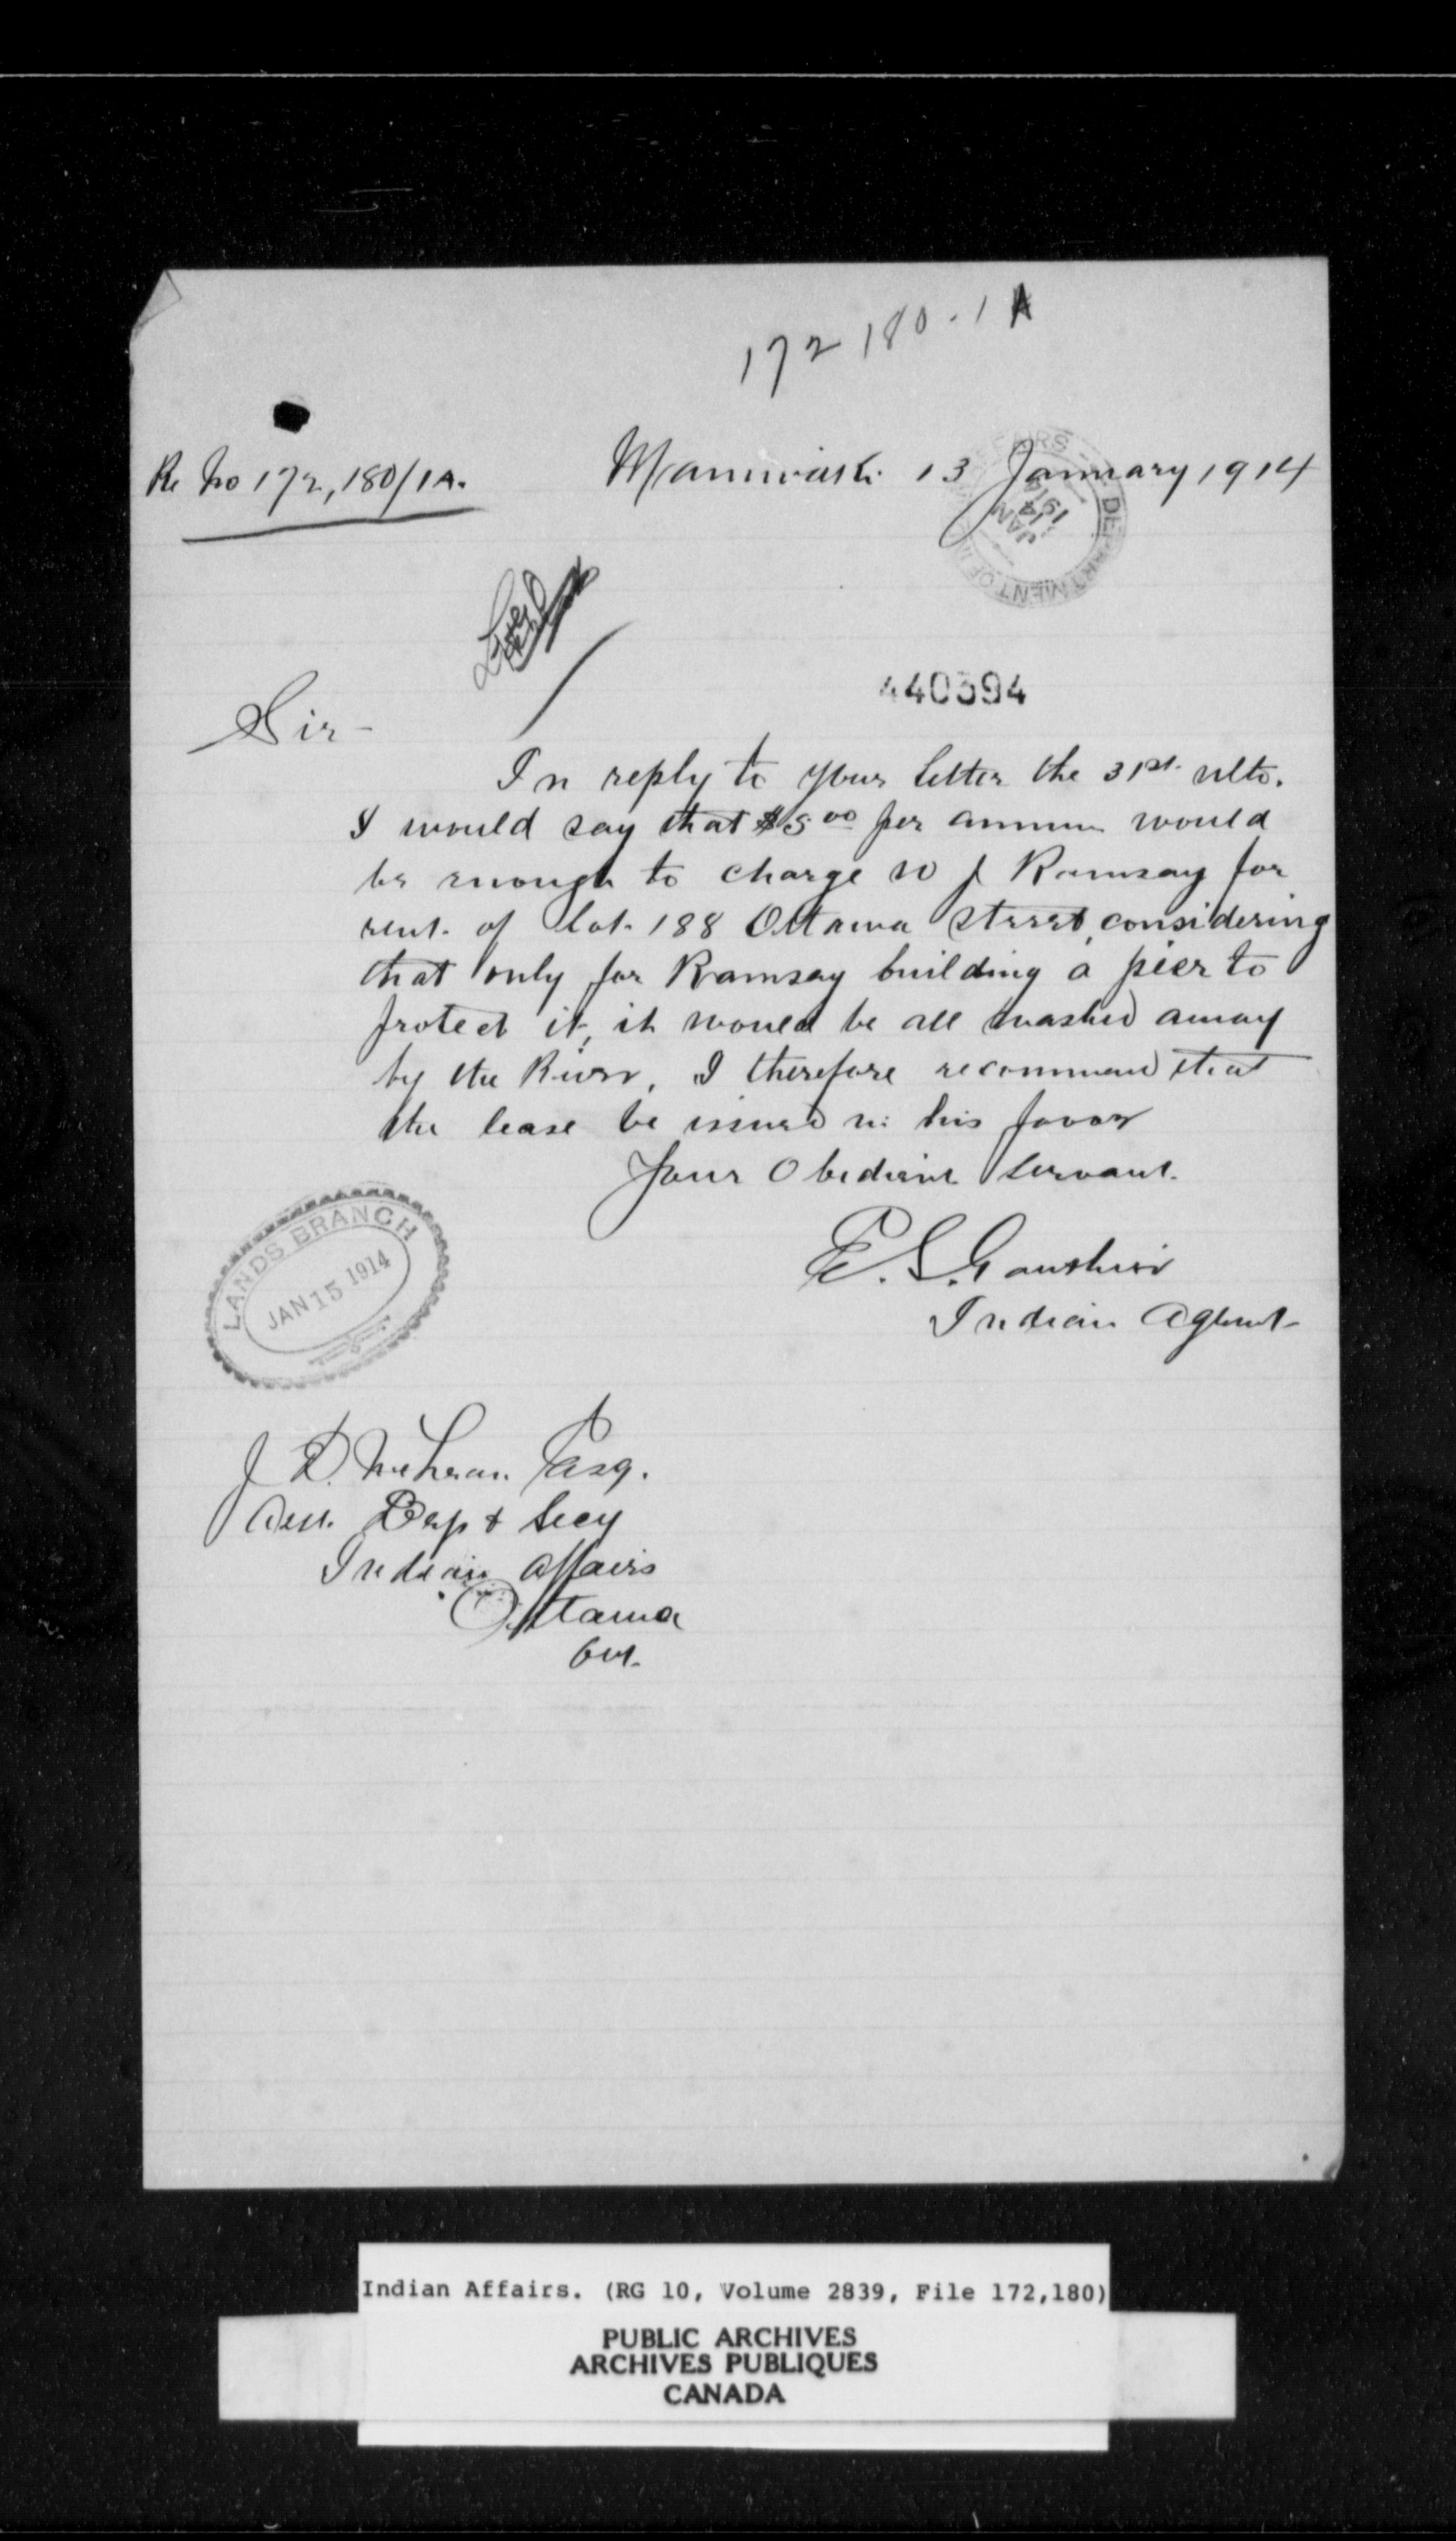 172 180-1 A
Re No 172,180/1A.
Maniwaki 13 January 1914
DEPARTMENT OF
JAN 14 1914
440394
Sir -
In reply to your letter the 31st ulto.
I would say that $5.00 per annum would
be enough to charge W J Ramsay for
rent of lot 188 Ottawa Street, considering
that only for Ramsay building a pier to
protect it, it would be all washed away
by the River, I therefore recommend that
the lease be issued in his favor
Your Obedient Servant.
E. S. Gauthier
Indian Agent
LANDS BRANCH
JAN 15 1914
J D. McLean Esq.
Asst. Dep & Secy
Indian Affairs
Ottawa
Ont.
Indian Affairs. (RG 10, Volume 2839, File 172,180)
PUBLIC ARCHIVES
ARCHIVES PUBLIQUES
CANADA